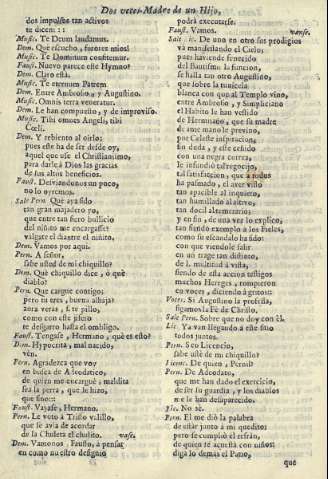 Dos veces Madre de un Hijo,
dos impulsos tan activos
te dicen::
Music. Te Deum laudamus.
Dem. Que escucho, furores mios!
Music. Te Dominum confitemur.
Faust. Nuevo parece este Hymno?
Dem. Claro està.
Music. Te æternum Patrem
Dem. Entre Ambrosio, y Augustino.
Music. Omnis terra veneratur.
Dem. Le han compuesto, y de improviso.
Music. Tibi omnes Angeli, tibi
Cœli.
Dem. Y rebiento al oirlo:
pues este ha de ser desde oy,
aquel que use el Christianismo,
para darle à Dios las gracias
de sus altos beneficios.
Faust. Desviandonos un poco,
no lo oyremos.
Sale Pern. Que aya sido
tan gran majadero yo,
que entre tan fiero bullicio
del niño me encargasse!
valgate el diastre el niñito.
Dem. Vamos por aqui.
Pern. A señor,
sabe usted de mi chiquillo?
Dem. Què chiquillo dice, ò què
diablo?
Pern. Que cargue contigo:
pero si eres, buena alhaja!
aora veràs, si te pillo,
como con este pliero
te desgarro hasta el ombligo.
Faust. Tengase, Hermano, què es esto?
Dem. Hypocrita, mal nacido,
vèn.
Pern. Agradezca que voy
en busca de Adeodatico,
de quien me encarguè; maldita
sea la perra, que le hizo,
que sino::
Faust. Vayase, Hermano.
Pern. Le votò à Trusto valillo,
que se avia de acordar
de la Chuleta el chulito. vase.
Dem. Vamonos, Fausto, à pensar
en como nuestro designio
podrà executarse.
Faust. Vamos. vanse.
Sale Lic. De uno en otro sus prodigios
và manifestando el Cielo,
pues haviendo sucedido
del Bautismo la funcion,
se halla tan otro Augustino,
que sobre la tunicela
blanca con que al Templo vino,
entre Ambrosio, y Simpliciano
el Habito le han vestido
de Hermitaño, que su madre
de ante mano le previno,
por Celeste inspiracion,
sin deda, y este ceñido
con una negra correa,
le infundiò tal regocijo,
tal satisfacion, que à todos
ha pasmado, el aver visto
tan apacible al inquieto,
tan humillado al altivo,
tan docil al temerario:
y en fin, de una vez lo explico,
tan siendo exemplo à los Fieles,
como su escandalo ha sido:
con que viendole salir
en un trage tan distinto,
de la multitud à vista,
siendo de esta accion testigos
muchos Hereges, rompieron
en voces, diciendo à gritos:
Voces. Si Augustino la professa,
sigamos la Fè de Christo.
Sale Pern. Sobre que no doy con èl.
Lic. Ya van llegando à este sitio
todos juntos.
Pern. Seo Licencio,
sabe usté de mi chiquillo?
Licenc. De quien, Pernil?
Pern. De Adeodato,
que me han dado el exercicio,
de ser su guardia, y los diablos
me le han desaparecido.
Lic. No sè.
Pern. El me diò la palabra
de estàr junto à mi quedito:
pero se cumpliò el refràn,
de quien te acuesta con niños:
diga lo demàs el Pano,
que